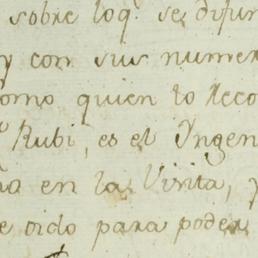 sobre loq.e se difun
y con sus numer
como quien lo Reco
Rubi, es el Yngen
na en la Visita, y
e sido para poder